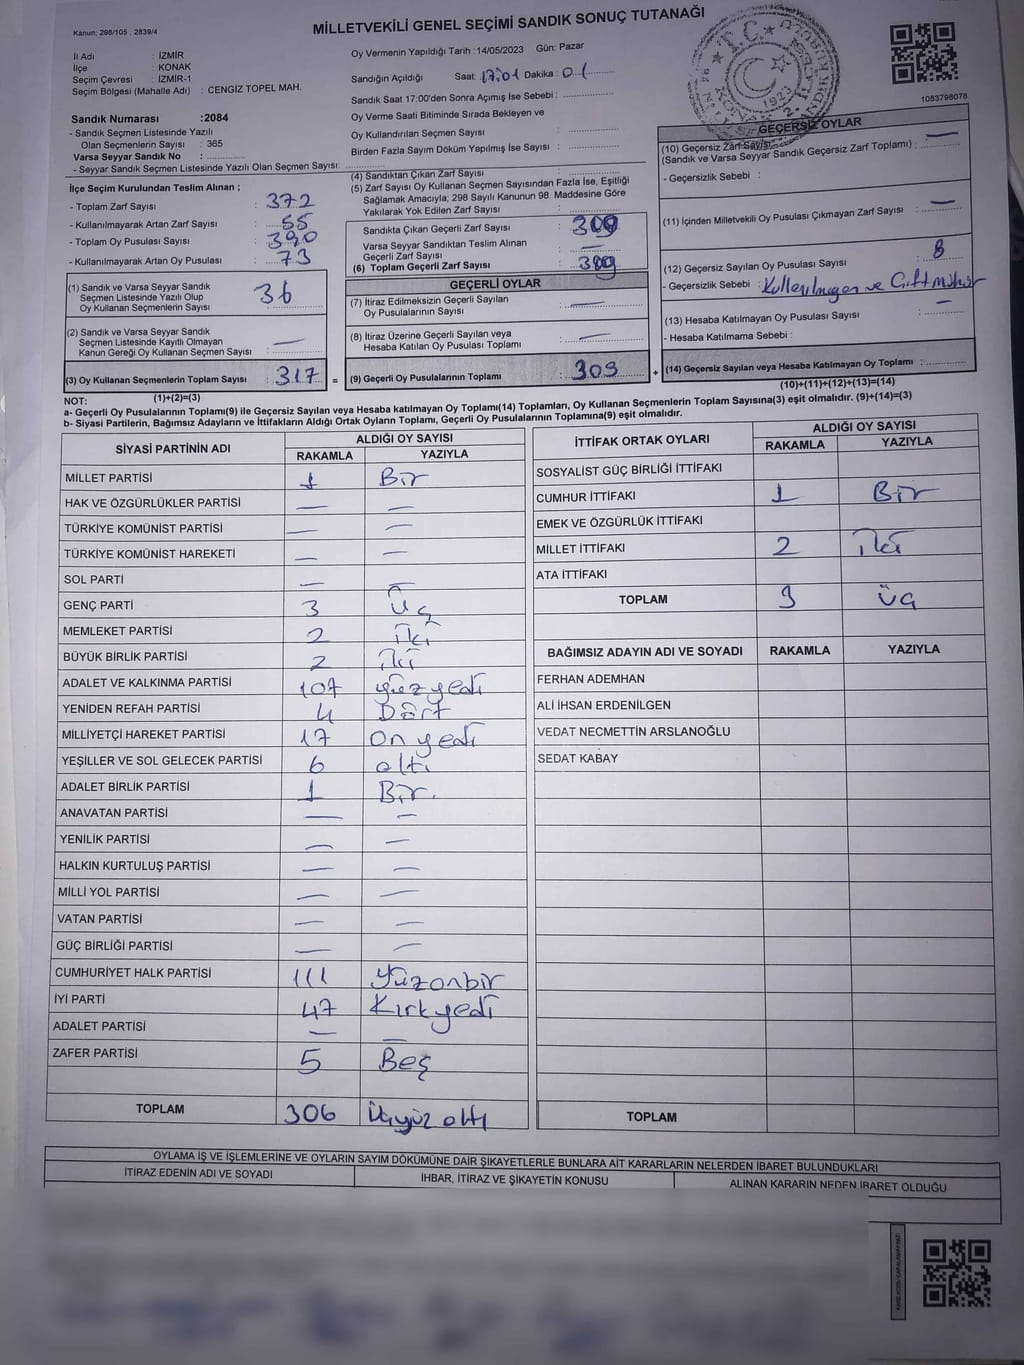 Kanun; 298/105 , 2839/4
MİLLETVEKİLİ GENEL SEÇİMİ SANDIK SONUÇ TUTANAĞI
İl Adı : İZMİR
İlçe : KONAK
Seçim Çevresi : İZMİR-1
Seçim Bölgesi (Mahalle Adı) : CENGİZ TOPEL MAH.
Sandık Numarası :2084
- Sandık Seçmen Listesinde Yazılı
Olan Seçmenlerin Sayısı : 365
Varsa Seyyar Sandık No :
- Seyyar Sandık Seçmen Listesinde Yazılı Olan Seçmen Sayısı:
Oy Vermenin Yapıldığı Tarih :14/05/2023 Gün: Pazar
Sandığın Açıldığı Saat: 17:01 Dakika: 01
Sandık Saat 17:00'den Sonra Açımış İse Sebebi:
Oy Verme Saati Bitiminde Sırada Bekleyen ve
Oy Kullandırılan Seçmen Sayısı :
Birden Fazla Sayım Döküm Yapılmış İse Sayısı :
T.C.
1923
1083798078
İlçe Seçim Kurulundan Teslim Alınan ;
- Toplam Zarf Sayısı : 372
- Kullanılmayarak Artan Zarf Sayısı : 55
- Toplam Oy Pusulası Sayısı : 390
- Kullanılmayarak Artan Oy Pusulası : 73
(1) Sandık ve Varsa Seyyar Sandık
Seçmen Listesinde Yazılı Olup
Oy Kullanan Seçmenlerin Sayısı : 36
(2) Sandık ve Varsa Seyyar Sandık
Seçmen Listesinde Kayıtlı Olmayan
Kanun Gereği Oy Kullanan Seçmen Sayısı : —
(3) Oy Kullanan Seçmenlerin Toplam Sayısı : 317 =
(1)+(2)=(3)
(4) Sandıktan Çıkan Zarf Sayısı :
(5) Zarf Sayısı Oy Kullanan Seçmen Sayısından Fazla İse, Eşitliği
Sağlamak Amacıyla; 298 Sayılı Kanunun 98. Maddesine Göre
Yakılarak Yok Edilen Zarf Sayısı :
Sandıkta Çıkan Geçerli Zarf Sayısı : 309
Varsa Seyyar Sandıktan Teslim Alınan
Geçerli Zarf Sayısı : —
(6) Toplam Geçerli Zarf Sayısı : 309
GEÇERLİ OYLAR
(7) İtiraz Edilmeksizin Geçerli Sayılan
Oy Pusulalarının Sayısı : —
(8) İtiraz Üzerine Geçerli Sayılan veya
Hesaba Katılan Oy Pusulası Toplamı : —
(9) Geçerli Oy Pusulalarının Toplamı : 309 +
GEÇERSİZ OYLAR
(10) Geçersiz Zarf Sayısı —
(Sandık ve Varsa Seyyar Sandık Geçersiz Zarf Toplamı) :
- Geçersizlik Sebebi :
(11) İçinden Milletvekili Oy Pusulası Çıkmayan Zarf Sayısı : —
(12) Geçersiz Sayılan Oy Pusulası Sayısı : 8
- Geçersizlik Sebebi : Kullanılmayan ve Çift mühür
(13) Hesaba Katılmayan Oy Pusulası Sayısı : —
- Hesaba Katılmama Sebebi :
(14) Geçersiz Sayılan veya Hesaba Katılmayan Oy Toplamı :
(10)+(11)+(12)+(13)=(14)
NOT:
a- Geçerli Oy Pusulalarının Toplamı(9) ile Geçersiz Sayılan veya Hesaba katılmayan Oy Toplamı(14) Toplamları, Oy Kullanan Seçmenlerin Toplam Sayısına(3) eşit olmalıdır. (9)+(14)=(3)
b- Siyasi Partilerin, Bağımsız Adayların ve İttifakların Aldığı Ortak Oyların Toplamı, Geçerli Oy Pusulalarının Toplamına(9) eşit olmalıdır.
SİYASİ PARTİNİN ADI ALDIĞI OY SAYISI
RAKAMLA YAZIYLA
MİLLET PARTİSİ 1 Bir
HAK VE ÖZGÜRLÜKLER PARTİSİ — —
TÜRKİYE KOMÜNİST PARTİSİ — —
TÜRKİYE KOMÜNİST HAREKETİ — —
SOL PARTİ — —
GENÇ PARTİ 3 Üç
MEMLEKET PARTİSİ 2 İki
BÜYÜK BİRLİK PARTİSİ 2 İki
ADALET VE KALKINMA PARTİSİ 107 yüzyedi
YENİDEN REFAH PARTİSİ 4 Dört
MİLLİYETÇİ HAREKET PARTİSİ 17 On yedi
YEŞİLLER VE SOL GELECEK PARTİSİ 6 altı
ADALET BİRLİK PARTİSİ 1 Bir.
ANAVATAN PARTİSİ — —
YENİLİK PARTİSİ — —
HALKIN KURTULUŞ PARTİSİ — —
MİLLİ YOL PARTİSİ — —
VATAN PARTİSİ — —
GÜÇ BİRLİĞİ PARTİSİ — —
CUMHURİYET HALK PARTİSİ 111 Yüzonbir
İYİ PARTİ 47 Kırkyedi
ADALET PARTİSİ — —
ZAFER PARTİSİ 5 Beş
TOPLAM 306 Üçyüz altı
İTTİFAK ORTAK OYLARI ALDIĞI OY SAYISI
RAKAMLA YAZIYLA
SOSYALİST GÜÇ BİRLİĞİ İTTİFAKI
CUMHUR İTTİFAKI 1 Bir
EMEK VE ÖZGÜRLÜK İTTİFAKI
MİLLET İTTİFAKI 2 İki
ATA İTTİFAKI
TOPLAM 3 Üç
BAĞIMSIZ ADAYIN ADI VE SOYADI RAKAMLA YAZIYLA
FERHAN ADEMHAN
ALİ İHSAN ERDENİLGEN
VEDAT NECMETTİN ARSLANOĞLU
SEDAT KABAY
TOPLAM
OYLAMA İŞ VE İŞLEMLERİNE VE OYLARIN SAYIM DÖKÜMÜNE DAİR ŞİKAYETLERLE BUNLARA AİT KARARLARIN NELERDEN İBARET BULUNDUKLARI
İTİRAZ EDENİN ADI VE SOYADI İHBAR, İTİRAZ VE ŞİKAYETİN KONUSU ALINAN KARARIN NEDEN İBARET OLDUĞU